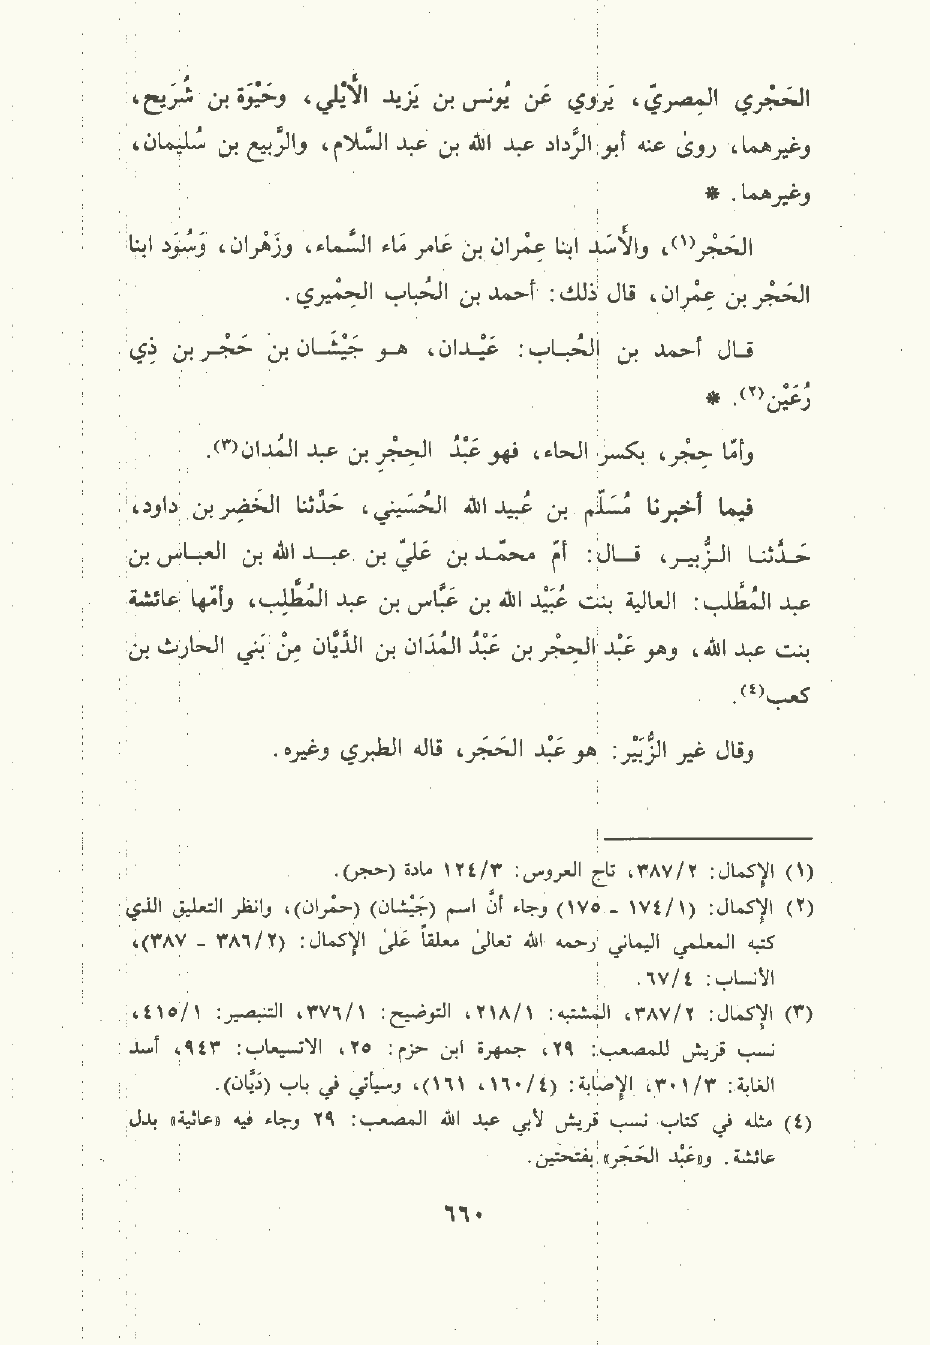 الحَجْري المِصريّ، يَروي عَن يُونس بن يَزيد الأَيْلي، وحَيْوَة بن شُرَيح،
وغيرهما، روىٰ عنه أبو الرَّداد عبد الله بن عبد السَّلام، والرَّبيع بن سُليمان،
وغيرهما. *
الحَجْر(١)، والأَسَد ابنا عِمْران بن عَامر مَاء السَّماء، وزَهْران، وَسُوَد ابنا
الحَجْر بن عِمْران، قال ذلك: أحمد بن الحُباب الحِمْيري.
قـال أحمد بن الحُبـاب: عَيْـدان، هـو جَيْشَـان بن حَجْـر بن ذِي
رُعَيْن(٢). *
وأمّا حِجْر، بكسر الحاء، فهو عَبْدُ الحِجْرِ بن عبد المُدان(٣).
فيما أخبرنا مُسَلَّم بن عُبيد الله الحُسَيني، حَدَّثنا الخَضِر بن داود،
حَـدَّثنـا الـزُّبيـر، قـال: أمّ محمّـد بن عَليّ بن عبـد الله بن العبـاس بن
عبد المُطَّلب: العالية بنت عُبَيْد الله بن عَبَّاس بن عبد المُطَّلِب، وأمّها عائشة
بنت عبد الله، وهو عَبْد الحِجْر بن عَبْدُ المُدَان بن الدَّيَّان مِنْ بَني الحارث بن
كعب(٤).
وقال غير الزُّبَيْر: هو عَبْد الحَجَر، قاله الطبري وغيره.
(١) الإكمال: ٣٨٧/٢، تاج العروس: ١٢٤/٣ مادة (حجر).
(٢) الإكمال: (١٧٤/١ - ١٧٥) وجاء أنَّ اسم (جَيْشان) (حمْران)، وانظر التعليق الذي
كتبه المعلمي اليماني رحمه الله تعالىٰ معلقاً علىٰ الإكمال: (٣٨٦/٢ - ٣٨٧)،
الأنساب: ٦٧/٤.
(٣) الإكمال: ٣٨٧/٢، المشتبه: ٢١٨/١، التوضيح: ٣٧٦/١، التنبصير: ٤١٥/١،
نسب قريش للمصعب: ٢٩، جمهرة ابن حزم: ٢٥، الاتسيعاب: ٩٤٣، أسد
الغابة: ٣٠١/٣، الإصابة: (١٦٠/٤، ١٦١)، وسيأتي في باب (دَيَّان).
(٤) مثله في كتاب نسب قريش لأبي عبد الله المصعب: ٢٩ وجاء فيه «عاثية» بدل
عائشة. و«عَبْد الحَجَر» بفتحتين.
٦٦٠